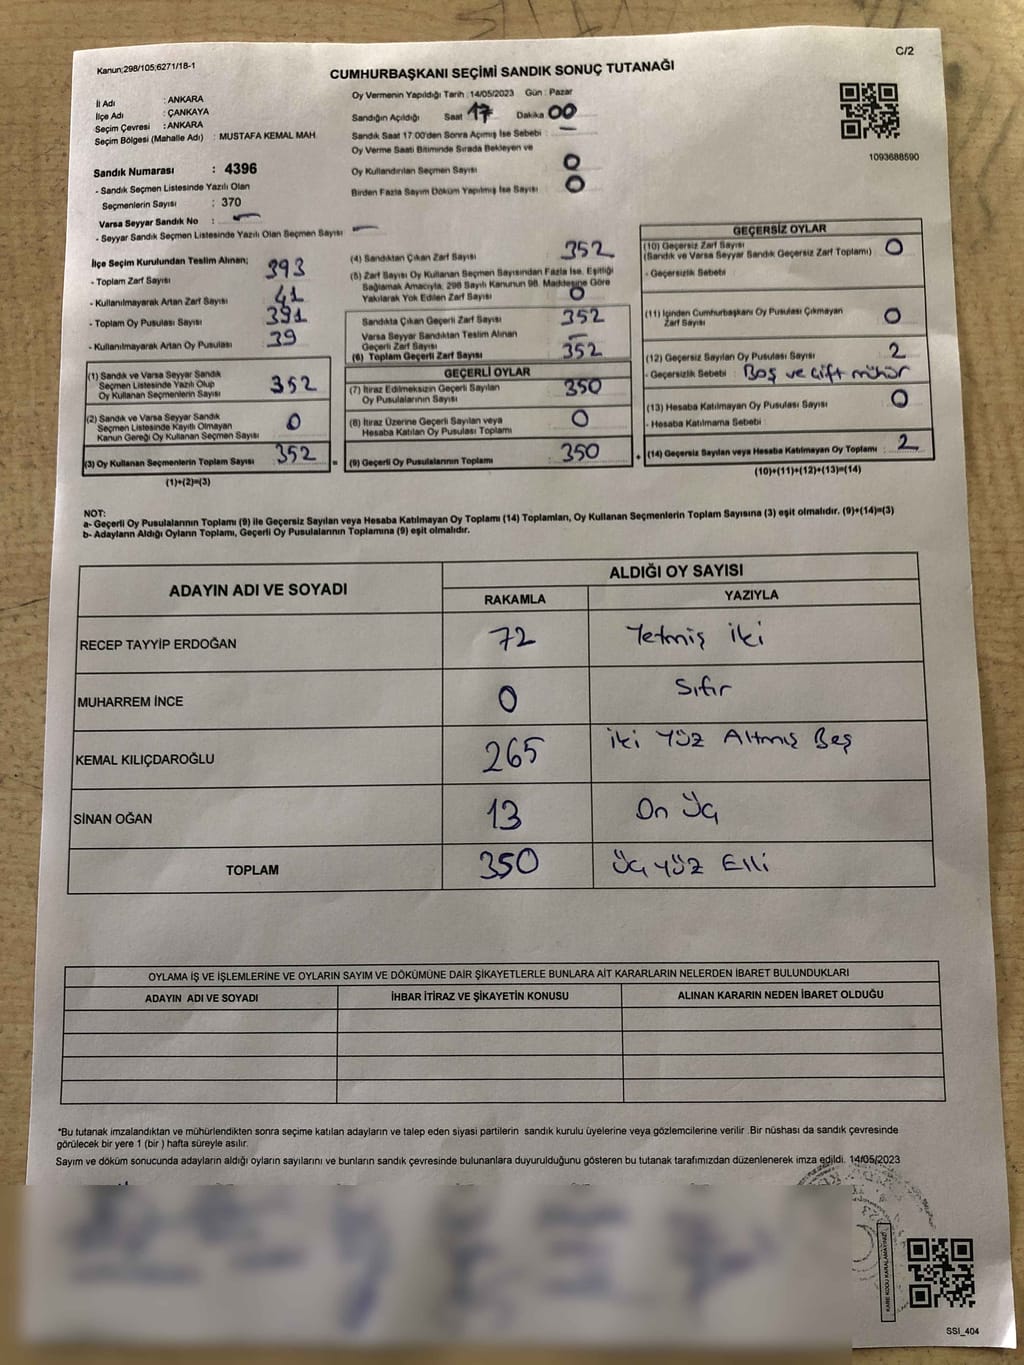 C/2
Kanun;298/105,6271/18-1
CUMHURBAŞKANI SEÇİMİ SANDIK SONUÇ TUTANAĞI
İl Adı : ANKARA
İlçe Adı : ÇANKAYA
Seçim Çevresi : ANKARA
Seçim Bölgesi (Mahalle Adı) : MUSTAFA KEMAL MAH.
Oy Vermenin Yapıldığı Tarih : 14/05/2023 Gün : Pazar
Sandığın Açıldığı Saat 17 Dakika 00
Sandık Saat 17:00'den Sonra Açımış İse Sebebi : —
Oy Verme Saati Bitiminde Sırada Bekleyen ve
Oy Kullandırılan Seçmen Sayısı 0
Birden Fazla Sayım Döküm Yapılmış İse Sayısı 0
1093688590
Sandık Numarası : 4396
- Sandık Seçmen Listesinde Yazılı Olan
Seçmenlerin Sayısı : 370
Varsa Seyyar Sandık No : —
- Seyyar Sandık Seçmen Listesinde Yazılı Olan Seçmen Sayısı —
İlçe Seçim Kurulundan Teslim Alınan;
- Toplam Zarf Sayısı 393
- Kullanılmayarak Artan Zarf Sayısı 41
- Toplam Oy Pusulası Sayısı 391
- Kullanılmayarak Artan Oy Pusulası 39
(1) Sandık ve Varsa Seyyar Sandık
Seçmen Listesinde Yazılı Olup
Oy Kullanan Seçmenlerin Sayısı 352
(2) Sandık ve Varsa Seyyar Sandık
Seçmen Listesinde Kayıtlı Olmayan
Kanun Gereği Oy Kullanan Seçmen Sayısı 0
(3) Oy Kullanan Seçmenlerin Toplam Sayısı 352
(1)+(2)=(3)
(4) Sandıktan Çıkan Zarf Sayısı 352
(5) Zarf Sayısı Oy Kullanan Seçmen Sayısından Fazla İse, Eşitliği
Sağlamak Amacıyla, 298 Sayılı Kanunun 98. Maddesine Göre
Yakılarak Yok Edilen Zarf Sayısı 0
Sandıkta Çıkan Geçerli Zarf Sayısı 352
Varsa Seyyar Sandıktan Teslim Alınan
Geçerli Zarf Sayısı —
(6) Toplam Geçerli Zarf Sayısı 352
GEÇERLİ OYLAR
(7) İtiraz Edilmeksizin Geçerli Sayılan
Oy Pusulalarının Sayısı 350
(8) İtiraz Üzerine Geçerli Sayılan veya
Hesaba Katılan Oy Pusulası Toplamı 0
(9) Geçerli Oy Pusulalarının Toplamı 350
=
+
GEÇERSİZ OYLAR
(10) Geçersiz Zarf Sayısı 0
(Sandık ve Varsa Seyyar Sandık Geçersiz Zarf Toplamı)
- Geçersizlik Sebebi
(11) İçinden Cumhurbaşkanı Oy Pusulası Çıkmayan
Zarf Sayısı 0
(12) Geçersiz Sayılan Oy Pusulası Sayısı 2
- Geçersizlik Sebebi : Boş ve çift mühür
(13) Hesaba Katılmayan Oy Pusulası Sayısı 0
- Hesaba Katılmama Sebebi
(14) Geçersiz Sayılan veya Hesaba Katılmayan Oy Toplamı : 2
(10)+(11)+(12)+(13)=(14)
NOT:
a- Geçerli Oy Pusulalarının Toplamı (9) ile Geçersiz Sayılan veya Hesaba Katılmayan Oy Toplamı (14) Toplamları, Oy Kullanan Seçmenlerin Toplam Sayısına (3) eşit olmalıdır. (9)+(14)=(3)
b- Adayların Aldığı Oyların Toplamı, Geçerli Oy Pusulalarının Toplamına (9) eşit olmalıdır.
ADAYIN ADI VE SOYADI
ALDIĞI OY SAYISI
RAKAMLA YAZIYLA
RECEP TAYYİP ERDOĞAN 72 Yetmiş iki
MUHARREM İNCE 0 Sıfır
KEMAL KILIÇDAROĞLU 265 iki Yüz Altmış Beş
SİNAN OĞAN 13 On Üç
TOPLAM 350 Üç yüz Elli
OYLAMA İŞ VE İŞLEMLERİNE VE OYLARIN SAYIM VE DÖKÜMÜNE DAİR ŞİKAYETLERLE BUNLARA AİT KARARLARIN NELERDEN İBARET BULUNDUKLARI
ADAYIN ADI VE SOYADI İHBAR İTİRAZ VE ŞİKAYETİN KONUSU ALINAN KARARIN NEDEN İBARET OLDUĞU
*Bu tutanak imzalandıktan ve mühürlendikten sonra seçime katılan adayların ve talep eden siyasi partilerin sandık kurulu üyelerine veya gözlemcilerine verilir .Bir nüshası da sandık çevresinde
görülecek bir yere 1 (bir ) hafta süreyle asılır.
Sayım ve döküm sonucunda adayların aldığı oyların sayılarını ve bunların sandık çevresinde bulunanlara duyurulduğunu gösteren bu tutanak tarafımızdan düzenlenerek imza edildi. 14/05/2023
KARE KODU KARALAMAYINIZ
SSI_404